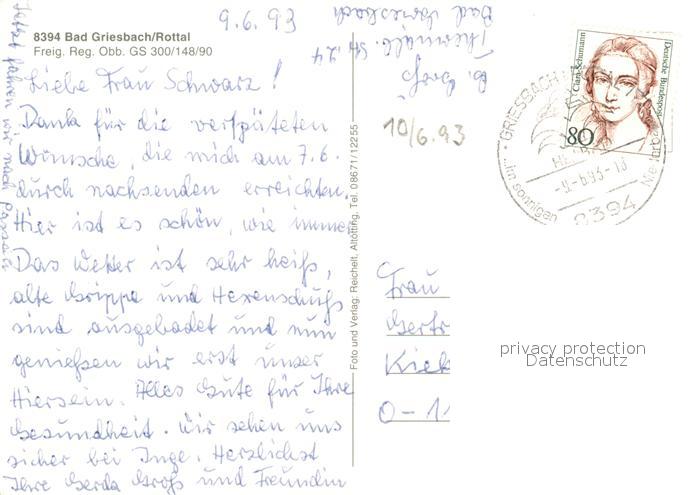 9.6.93
8394 Bad Griesbach/Rottal
Freig. Reg. Obb. GS 300/148/90
Liebe Frau Schwarz!
Dank für die verspäteten
Wünsche, die mich am 7.6.
durch nachsenden erreichten.
Hier ist es schön, wie immer
Das Wetter ist sehr heiß,
alte Grippe und Hexenschuß
sind ausgebadet und nun
genießen wir erst unser
Hiersein. Alles Gute für Ihre
Gesundheit. Wir sehen uns
sicher bei Inge. Herzlichst
Ihre Gerda Groß und Freundin
Jetzt fahren wir nach Passau
Foto und Verlag: Reichelt, Altötting, Tel. 08671/12255
Groß
Thermalb. Str. 24
Bad Griesbach
10/6.93
Clara Schumann
Deutsche Bundespost
80
GRIESBACH
-9.-6.93-18
...im sonnigen
8394
Frau
Gertr
Kiek
O-1
privacy protection
Datenschutz